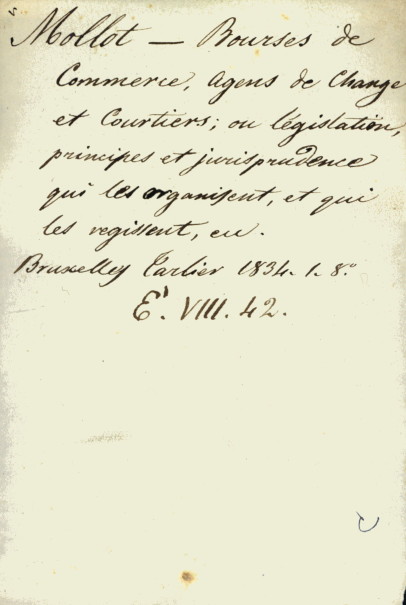 Mollot — Bourses de
Commerce, agens de Change
et Courtiers; ou législation,
principes et jurisprudence
qui les organisent, et qui
les regissent, eu.
Bruxelles Tarlier 1834. 1. 8.°
E'. VIII. 42.